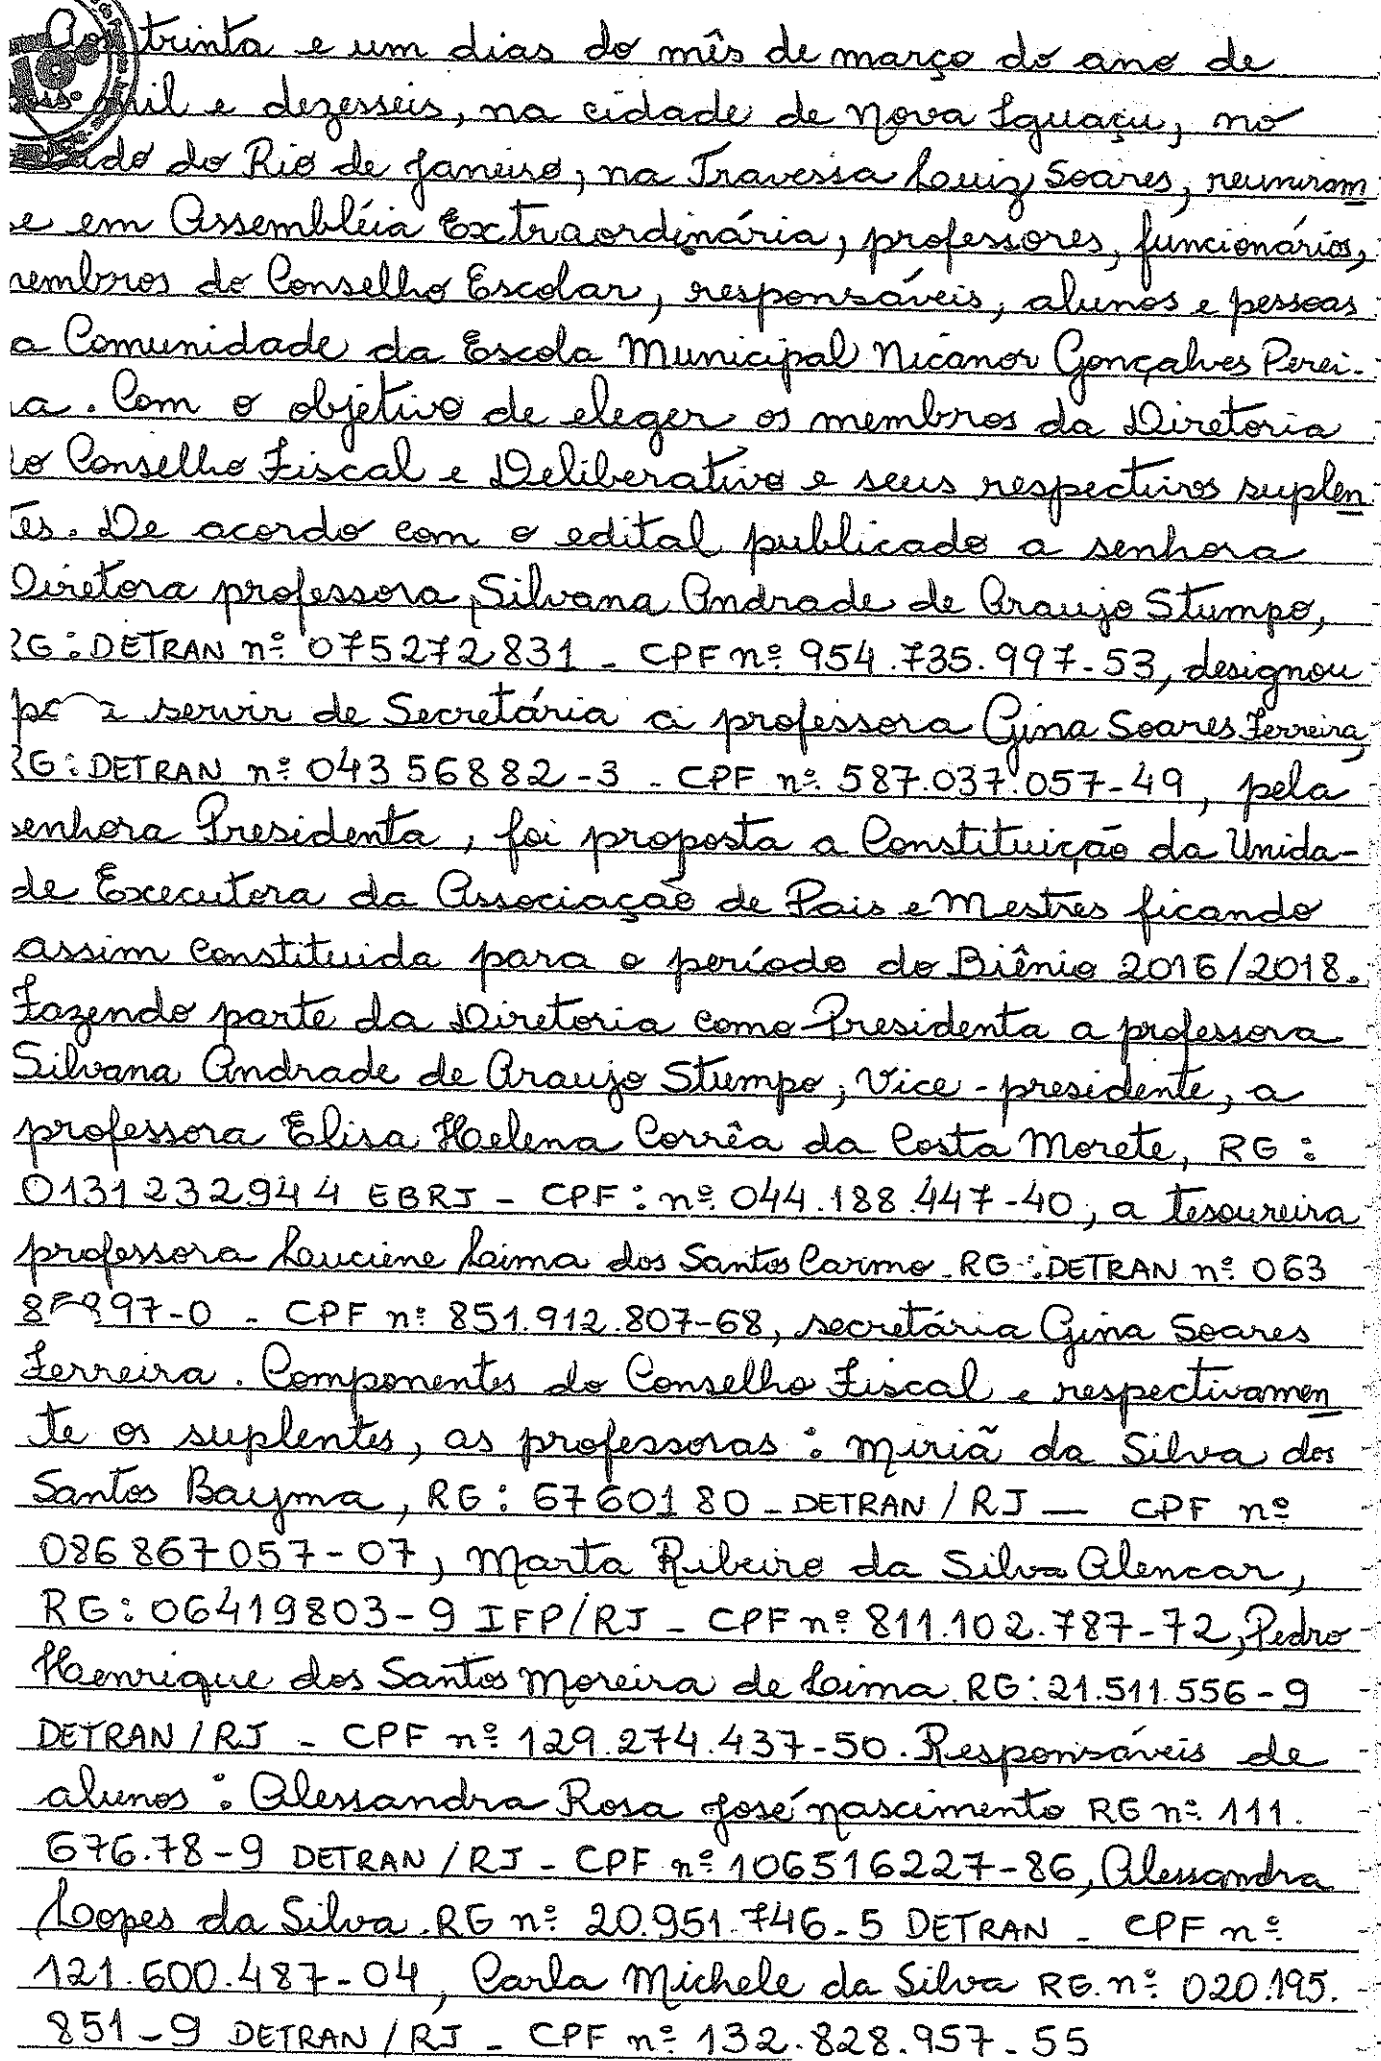 Aos trinta e um dias do mês de março do ano de
mil e dezesseis, na cidade de Nova Iguaçu, no
do Rio de Janeiro, na Travessa Luiz Soares, reuniram
se em Assembléia Extraordinária, professores, funcionários,
membros do Conselho Escolar, responsáveis, alunos e pessoas
a Comunidade da Escola Municipal Nicanor Gonçalves Perei-
ra. Com o objetivo de eleger os membros da Diretoria
do Conselho Fiscal e Deliberativo e seus respectivos suplen
tes. De acordo com o edital publicado a senhora
Diretora professora, Silvana Andrade de Araujo Stumpo,
RG: DETRAN nº 075272831 - CPF nº 954.735.997-53, designou
servir de Secretária a professora Gina Soares Ferreira,
RG: DETRAN nº 04356882-3 - CPF nº 587.037.057-49, pela
senhora Presidenta, foi proposta a Constituição da Unida-
de Executora da Associação de Pais e Mestres ficando
assim constituida para o período do Biênio 2016/2018.
Fazendo parte da Diretoria como Presidenta a professora
Silvana Andrade de Araujo Stumpo, Vice-presidente, a
professora Elisa Helena Corrêa da Costa Morete, RG:
0131232944 EBRJ - CPF: nº 044.188.447-40, a tesoureira
professora Luciene Lima dos Santos Carmo. RG: DETRAN nº 063
97-0 - CPF nº 851.912.807-68, secretária Gina Soares
Ferreira. Componentes do Conselho Fiscal e respectivamen
te os suplentes, as professoras: Miriã da Silva dos
Santos Bayma, RG: 6760180 - DETRAN/RJ — CPF nº
086867057-07, Marta Ribeiro da Silva Alencar,
RG: 06419803-9 IFP/RJ - CPF nº 811.102.787-72, Pedro
Henrique dos Santos Moreira de Lima. RG: 21.511.556-9
DETRAN/RJ - CPF nº 129.274.437-50. Responsáveis de
alunos: Alessandra Rosa José Nascimento RG nº 111.
676.78-9 DETRAN/RJ - CPF nº 106516227-86, Alessandra
Lopes da Silva. RG nº 20.951.746-5 DETRAN - CPF nº
121.600.487-04, Carla Michele da Silva RG. nº 020.195.
851-9 DETRAN/RJ - CPF nº 132.828.957-55